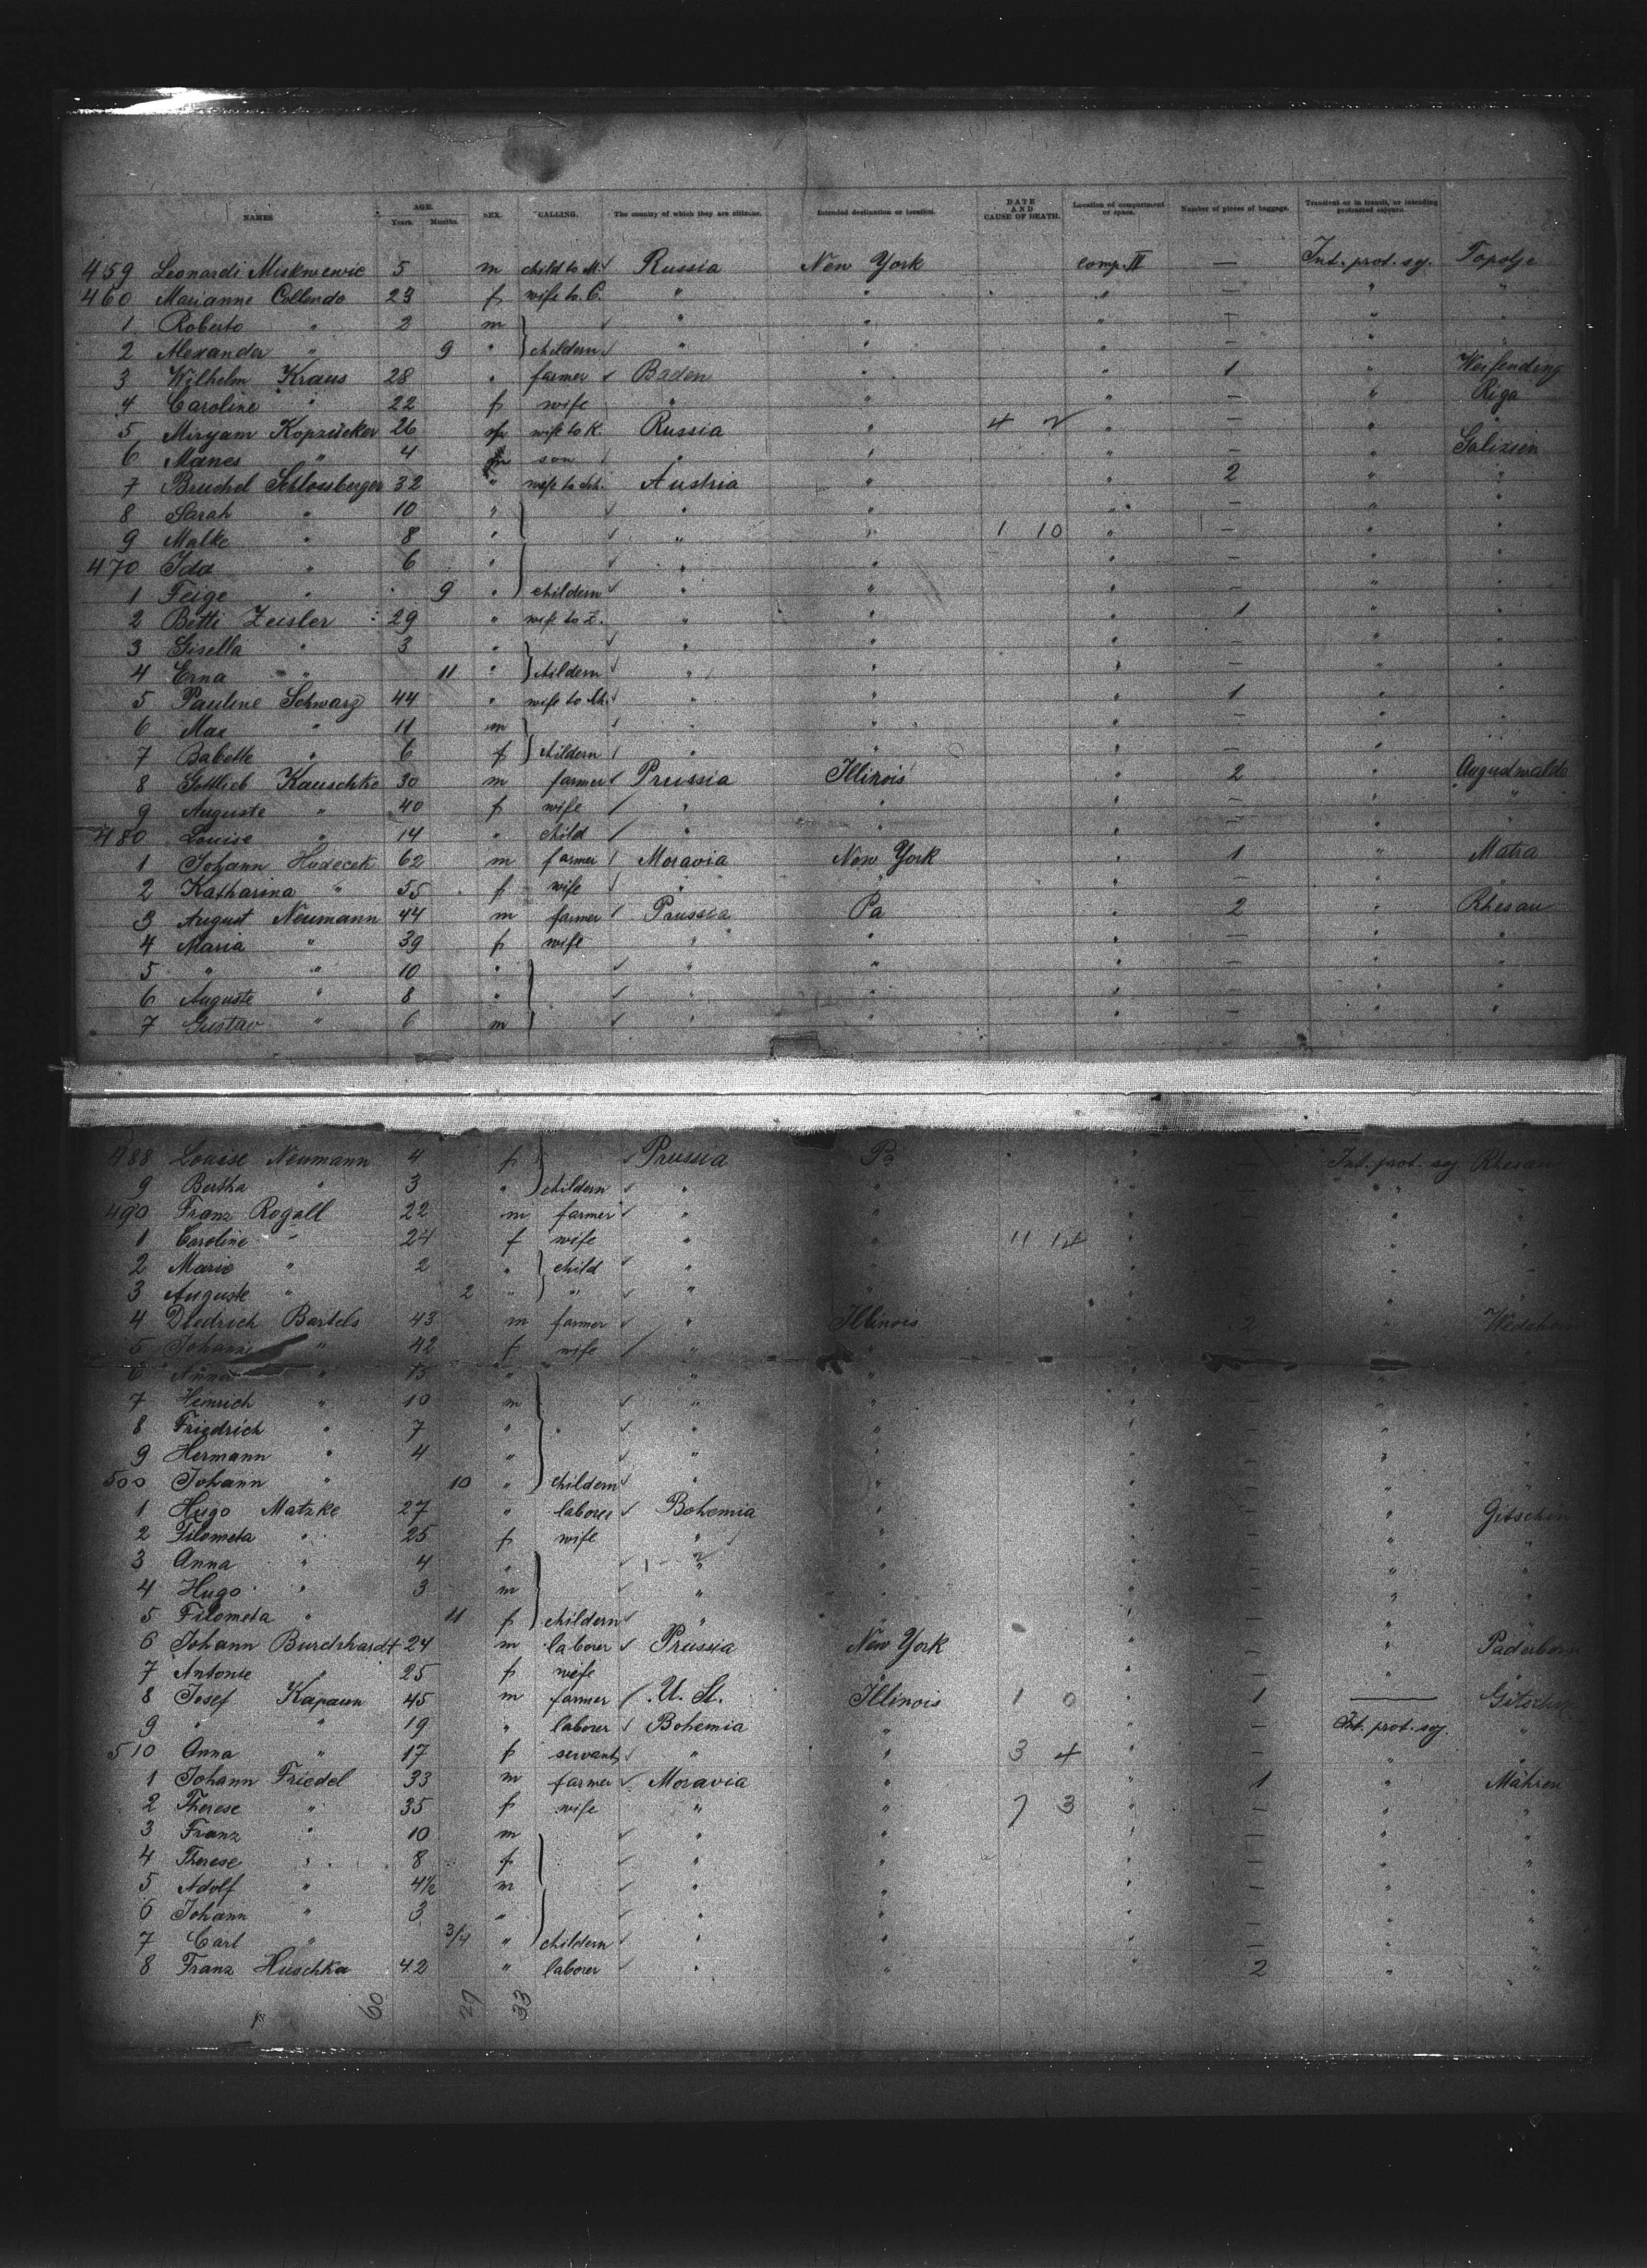 NAMES AGE. Years. Months. SEX. CALLING. The country of which they are citizens. Intended destination or location. DATE AND CAUSE OF DEATH. Location of compartment or space. Number of pieces of baggage. Transient or in transit, or intending protracted sojourn.
459 Leonardi Misknrewic 5 m child to M. Russia New York comp. II — Int. prot. soj. Topolje
460 Marianne Collendo 23 f wife to C. " " " — " "
1 Roberto " 2 m " " " — " "
2 Alexander " 9 " childern " " " — " "
3 Wilhelm Kraus 28 " farmer Baden " " 1 " Weifending
4 Caroline " 22 f wife " " " — " Riga
5 Miryam Kopzücker 26 f wife to K. Russia " 4 2 " — " "
6 Manes " 4 m son " " " — " Galizien
7 Bruchel Schlossberger 32 " wife to Sch. Austria " " 2 " "
8 Sarah " 10 " " " " — " "
9 Malke " 8 " " " 1 10 " — " "
470 Ida " 6 " " " " — " "
1 Feige " 9 " childern " " " — " "
2 Betti Zeisler 29 " wife to Z. " " " 1 " "
3 Gisella " 3 " " " " — " "
4 Erna " 11 " childern " " " — " "
5 Pauline Schwarz 44 " wife to Sch. " " " 1 " "
6 Max " 11 m " " " — " "
7 Babette " 6 f childern " " " — " "
8 Gottlieb Kauschke 30 m farmer Prussia Illinois " 2 " Augustwalde
9 Auguste " 40 f wife " " " — " "
480 Louise " 14 " child " " " — " "
1 Johann Hudecek 62 m farmer Moravia New York " 1 " Matra
2 Katharina " 55 f wife " " " — " "
3 August Neumann 44 m farmer Prussia Pa " 2 " Rhesau
4 Maria " 39 f wife " " " — " "
5 " " 10 " " " " — " "
6 Auguste " 8 " " " " — " "
7 Gustav " 6 m " " " — " "
488 Louise Neumann 4 f Prussia Pa " — Int. prot. soj Rhesau
9 Bertha " 3 " childern " " " — " "
490 Franz Rogall 22 m farmer " " " — " "
1 Caroline " 24 f wife " " 11 14 " — " "
2 Marie " 2 " child " " " — " "
3 Auguste " 2 " " " " " — " "
4 Diedrich Bartels 43 m farmer " Illinois " 2 " Wedehorn
5 Johanne " 42 f wife " " " — " "
6 Anna " 15 " " " " — " "
7 Heinrich " 10 m " " " — " "
8 Friedrich " 7 " " " " — " "
9 Hermann " 4 " " " " — " "
500 Johann " 10 " childern " " " — " "
1 Hugo Matzke 27 " laborer Bohemia " " " Gitschin
2 Filometa " 25 f wife " " " — " "
3 Anna " 4 " " " " — " "
4 Hugo " 3 m " " " — " "
5 Filometa " 11 f childern " " " — " "
6 Johann Burchhardt 24 m laborer Prussia New York " — " Paderborn
7 Antonie " 25 f wife " " " — " "
8 Josef Kapaun 45 m farmer U. St. Illinois 1 0 " 1 — Gitschin
9 " " 19 " laborer Bohemia " " — Int. prot. soj. "
510 Anna " 17 f servant " " 3 4 " — " "
1 Johann Friedel 33 m farmer Moravia " " 1 " Mähren
2 Therese " 35 f wife " " 7 3 " — " "
3 Franz " 10 m " " " — " "
4 Therese " 8 f " " " — " "
5 Adolf " 4½ m " " " — " "
6 Johann " 3 " " " " — " "
7 Carl " 3/4 " childern " " " — " "
8 Franz Huschka 42 " laborer " " " 2 " "
60 27 33